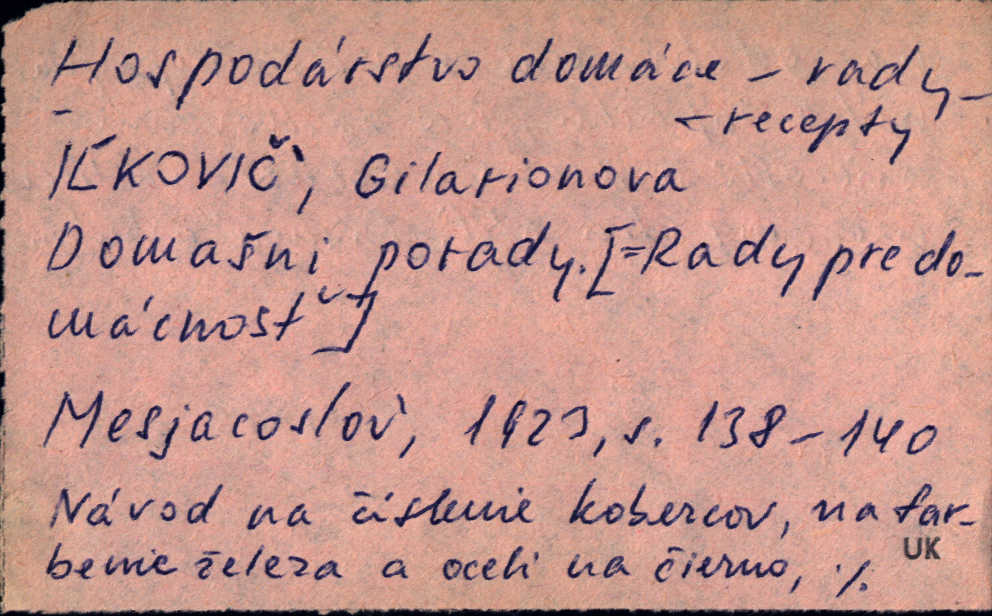 Hospodárstvo domáce - rady -
- recepty
IĽKOVIČ', Gilarionova
Domašni porady. [=Rady pre do-
mácnosť]
Mesjacoslov, 1923, s. 138-140
Návod na čistenie kobercov, na far-
benie železa a oceli na čierno, ·/.
UK